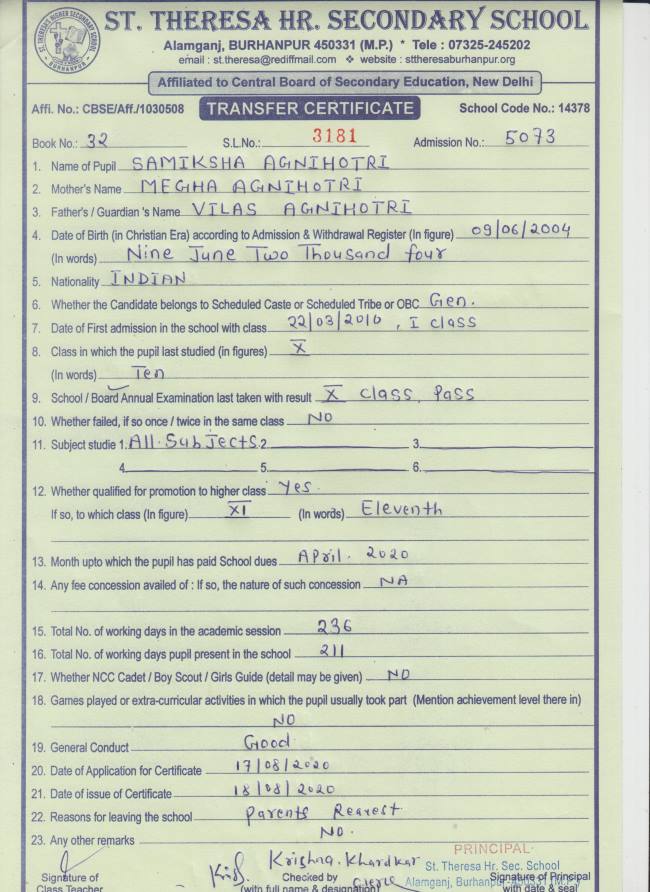 ST. THERESA HR. SECONDARY SCHOOL
Alamganj, BURHANPUR 450331 (M.P.) * Tele : 07325-245202
email : st.theresa@rediffmail.com ❖ website : sttheresaburhanpur.org
Affiliated to Central Board of Secondary Education, New Delhi
Affi. No.: CBSE/Aff./1030508 TRANSFER CERTIFICATE School Code No.: 14378
Book No.: 32 S.L.No.: 3181 Admission No.: 5073
1. Name of Pupil SAMIKSHA AGNIHOTRI
2. Mother's Name MEGHA AGNIHOTRI
3. Father's / Guardian 's Name VILAS AGNIHOTRI
4. Date of Birth (in Christian Era) according to Admission & Withdrawal Register (In figure) 09/06/2004
(In words) Nine June Two Thousand four
5. Nationality INDIAN
6. Whether the Candidate belongs to Scheduled Caste or Scheduled Tribe or OBC Gen.
7. Date of First admission in the school with class 22/03/2010, I class
8. Class in which the pupil last studied (in figures) X
(In words) Ten
9. School / Board Annual Examination last taken with result X class, Pass
10. Whether failed, if so once / twice in the same class NO
11. Subject studie 1. All Subjects 2. 3.
4. 5. 6.
12. Whether qualified for promotion to higher class Yes.
If so, to which class (In figure) XI (In words) Eleventh
13. Month upto which the pupil has paid School dues April. 2020
14. Any fee concession availed of : If so, the nature of such concession NA
15. Total No. of working days in the academic session 236
16. Total No. of working days pupil present in the school 211
17. Whether NCC Cadet / Boy Scout / Girls Guide (detail may be given) NO
18. Games played or extra-curricular activities in which the pupil usually took part (Mention achievement level there in)
NO
19. General Conduct Good
20. Date of Application for Certificate 17/08/2020
21. Date of issue of Certificate 18/08/2020
22. Reasons for leaving the school Parents Reaest
23. Any other remarks NO.
Krishna. Khardkar
PRINCIPAL
St. Theresa Hr. Sec. School
Signature of Checked by Signature of Principal
Alamganj, Burhanpur
Class Teacher (with full name & designation) (with date & seal)